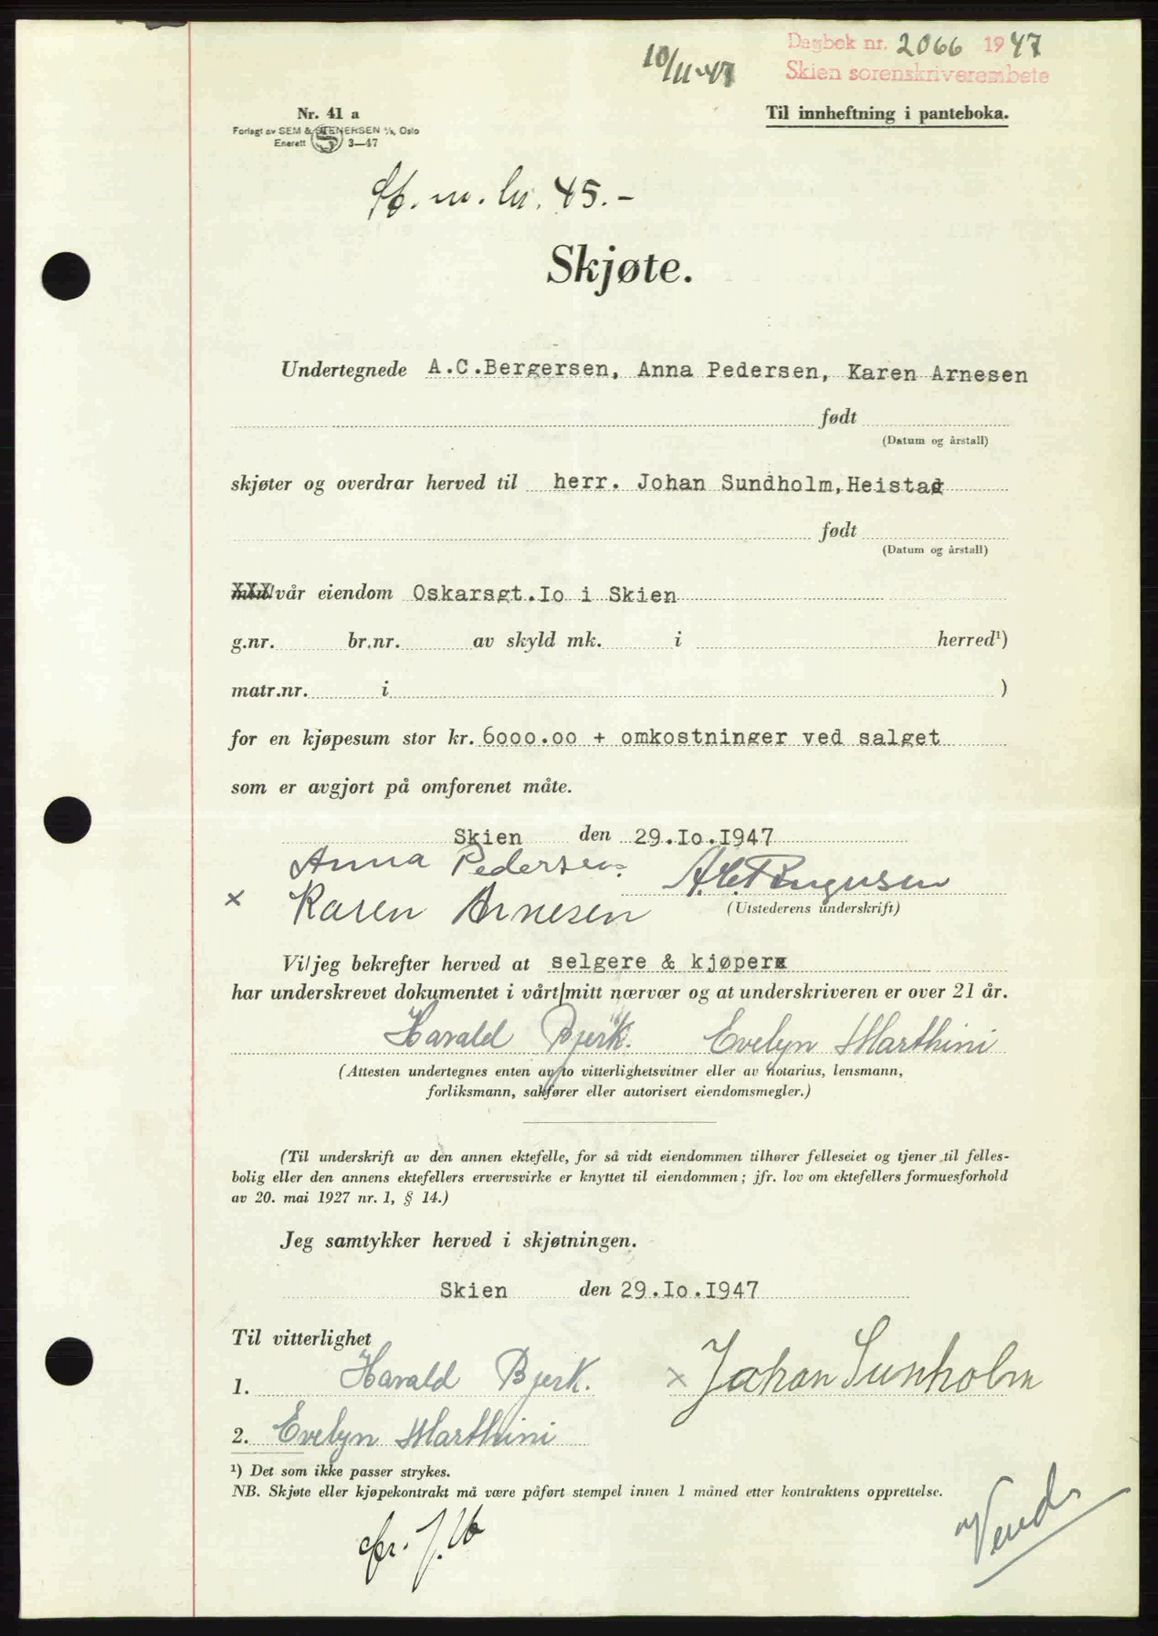 Dagbok nr. 2066 1947
10/11-47
Skien sorenskriverembete
Nr. 41 a
Til innheftning i panteboka.
Forlagt av SEM & STENERSEN A/S, Oslo
Enerett 3—47
St. m. kr. 45.-
Skjøte.
Undertegnede A.C.Bergersen, Anna Pedersen, Karen Arnesen
født
(Datum og årstall)
skjøter og overdrar herved til herr. Johan Sundholm, Heistad
født
(Datum og årstall)
min/vår eiendom Oskarsgt.Io i Skien
g.nr. br.nr. av skyld mk. i herred¹)
matr.nr. i )
for en kjøpesum stor kr. 6000.00 + omkostninger ved salget
som er avgjort på omforenet måte.
Skien den 29.Io.I947
Anna Pedersen. A.C.Bergersen
x Karen Arnesen
(Utstederens underskrift)
Vi/jeg bekrefter herved at selgere & kjøper
har underskrevet dokumentet i vårt/mitt nærvær og at underskriveren er over 21 år.
Harald Bjerk. Evelyn Marthini
(Attesten undertegnes enten av to vitterlighetsvitner eller av notarius, lensmann,
forliksmann, sakfører eller autorisert eiendomsmegler.)
(Til underskrift av den annen ektefelle, for så vidt eiendommen tilhører felleseiet og tjener til felles-
bolig eller den annens ektefellers ervervsvirke er knyttet til eiendommen; jfr. lov om ektefellers formuesforhold
av 20. mai 1927 nr. 1, § 14.)
Jeg samtykker herved i skjøtningen.
Skien den 29.Io.I947
Til vitterlighet
1. Harald Bjerk. x Johan Sunholm
2. Evelyn Marthini
¹) Det som ikke passer strykes.
NB. Skjøte eller kjøpekontrakt må være påført stempel innen 1 måned etter kontraktens opprettelse.
Vend